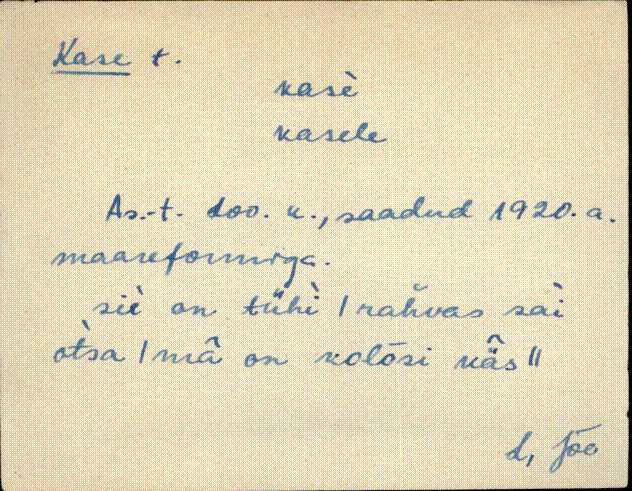 Kase t.
kasè
kasele
As.-t. loo. u., saadud 1920. a.
maareformiga.
siè on tühì / rahvas sai
òtsa / mâ on kolõsi käs ||
L, Jõe